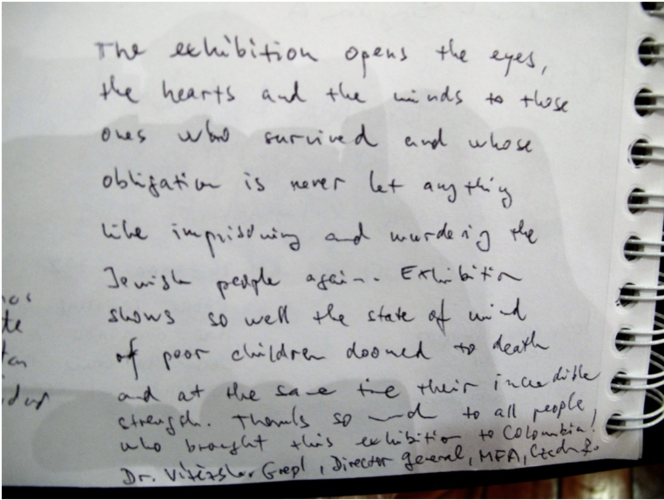 The exhibition opens the eyes,
the hearts and the minds to those
ones who survived and whose
obligation is never let anything
like imprisoning and murdering the
Jewish people again. Exhibition
shows so well the state of mind
of poor children doomed to death
and at the same time their incredible
strength. Thanks so much to all people,
who brought this exhibition to Colombia.
Dr. Vítězslav Grepl, Director general, MFA, Czech